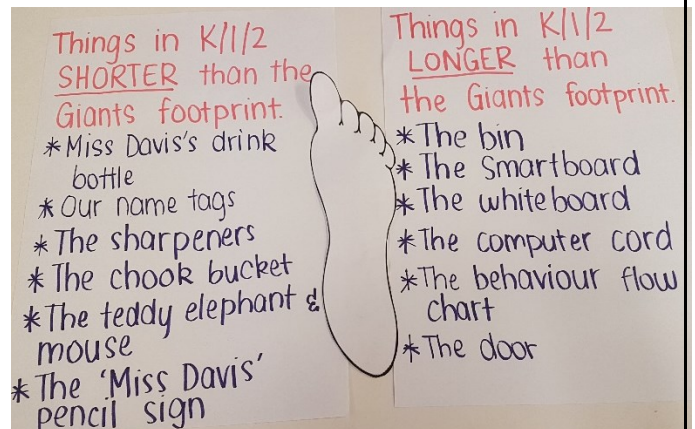 Things in K/1/2
SHORTER than the
Giants footprint.
*Miss Davis's drink
bottle
*Our name tags
*The sharpeners
*The chook bucket
*The teddy elephant &
mouse
*The 'Miss Davis'
pencil sign
Things in K/1/2
LONGER than
the Giants footprint.
*The bin
*The Smartboard
*The whiteboard
*The computer cord
*The behaviour flow
chart
*The door